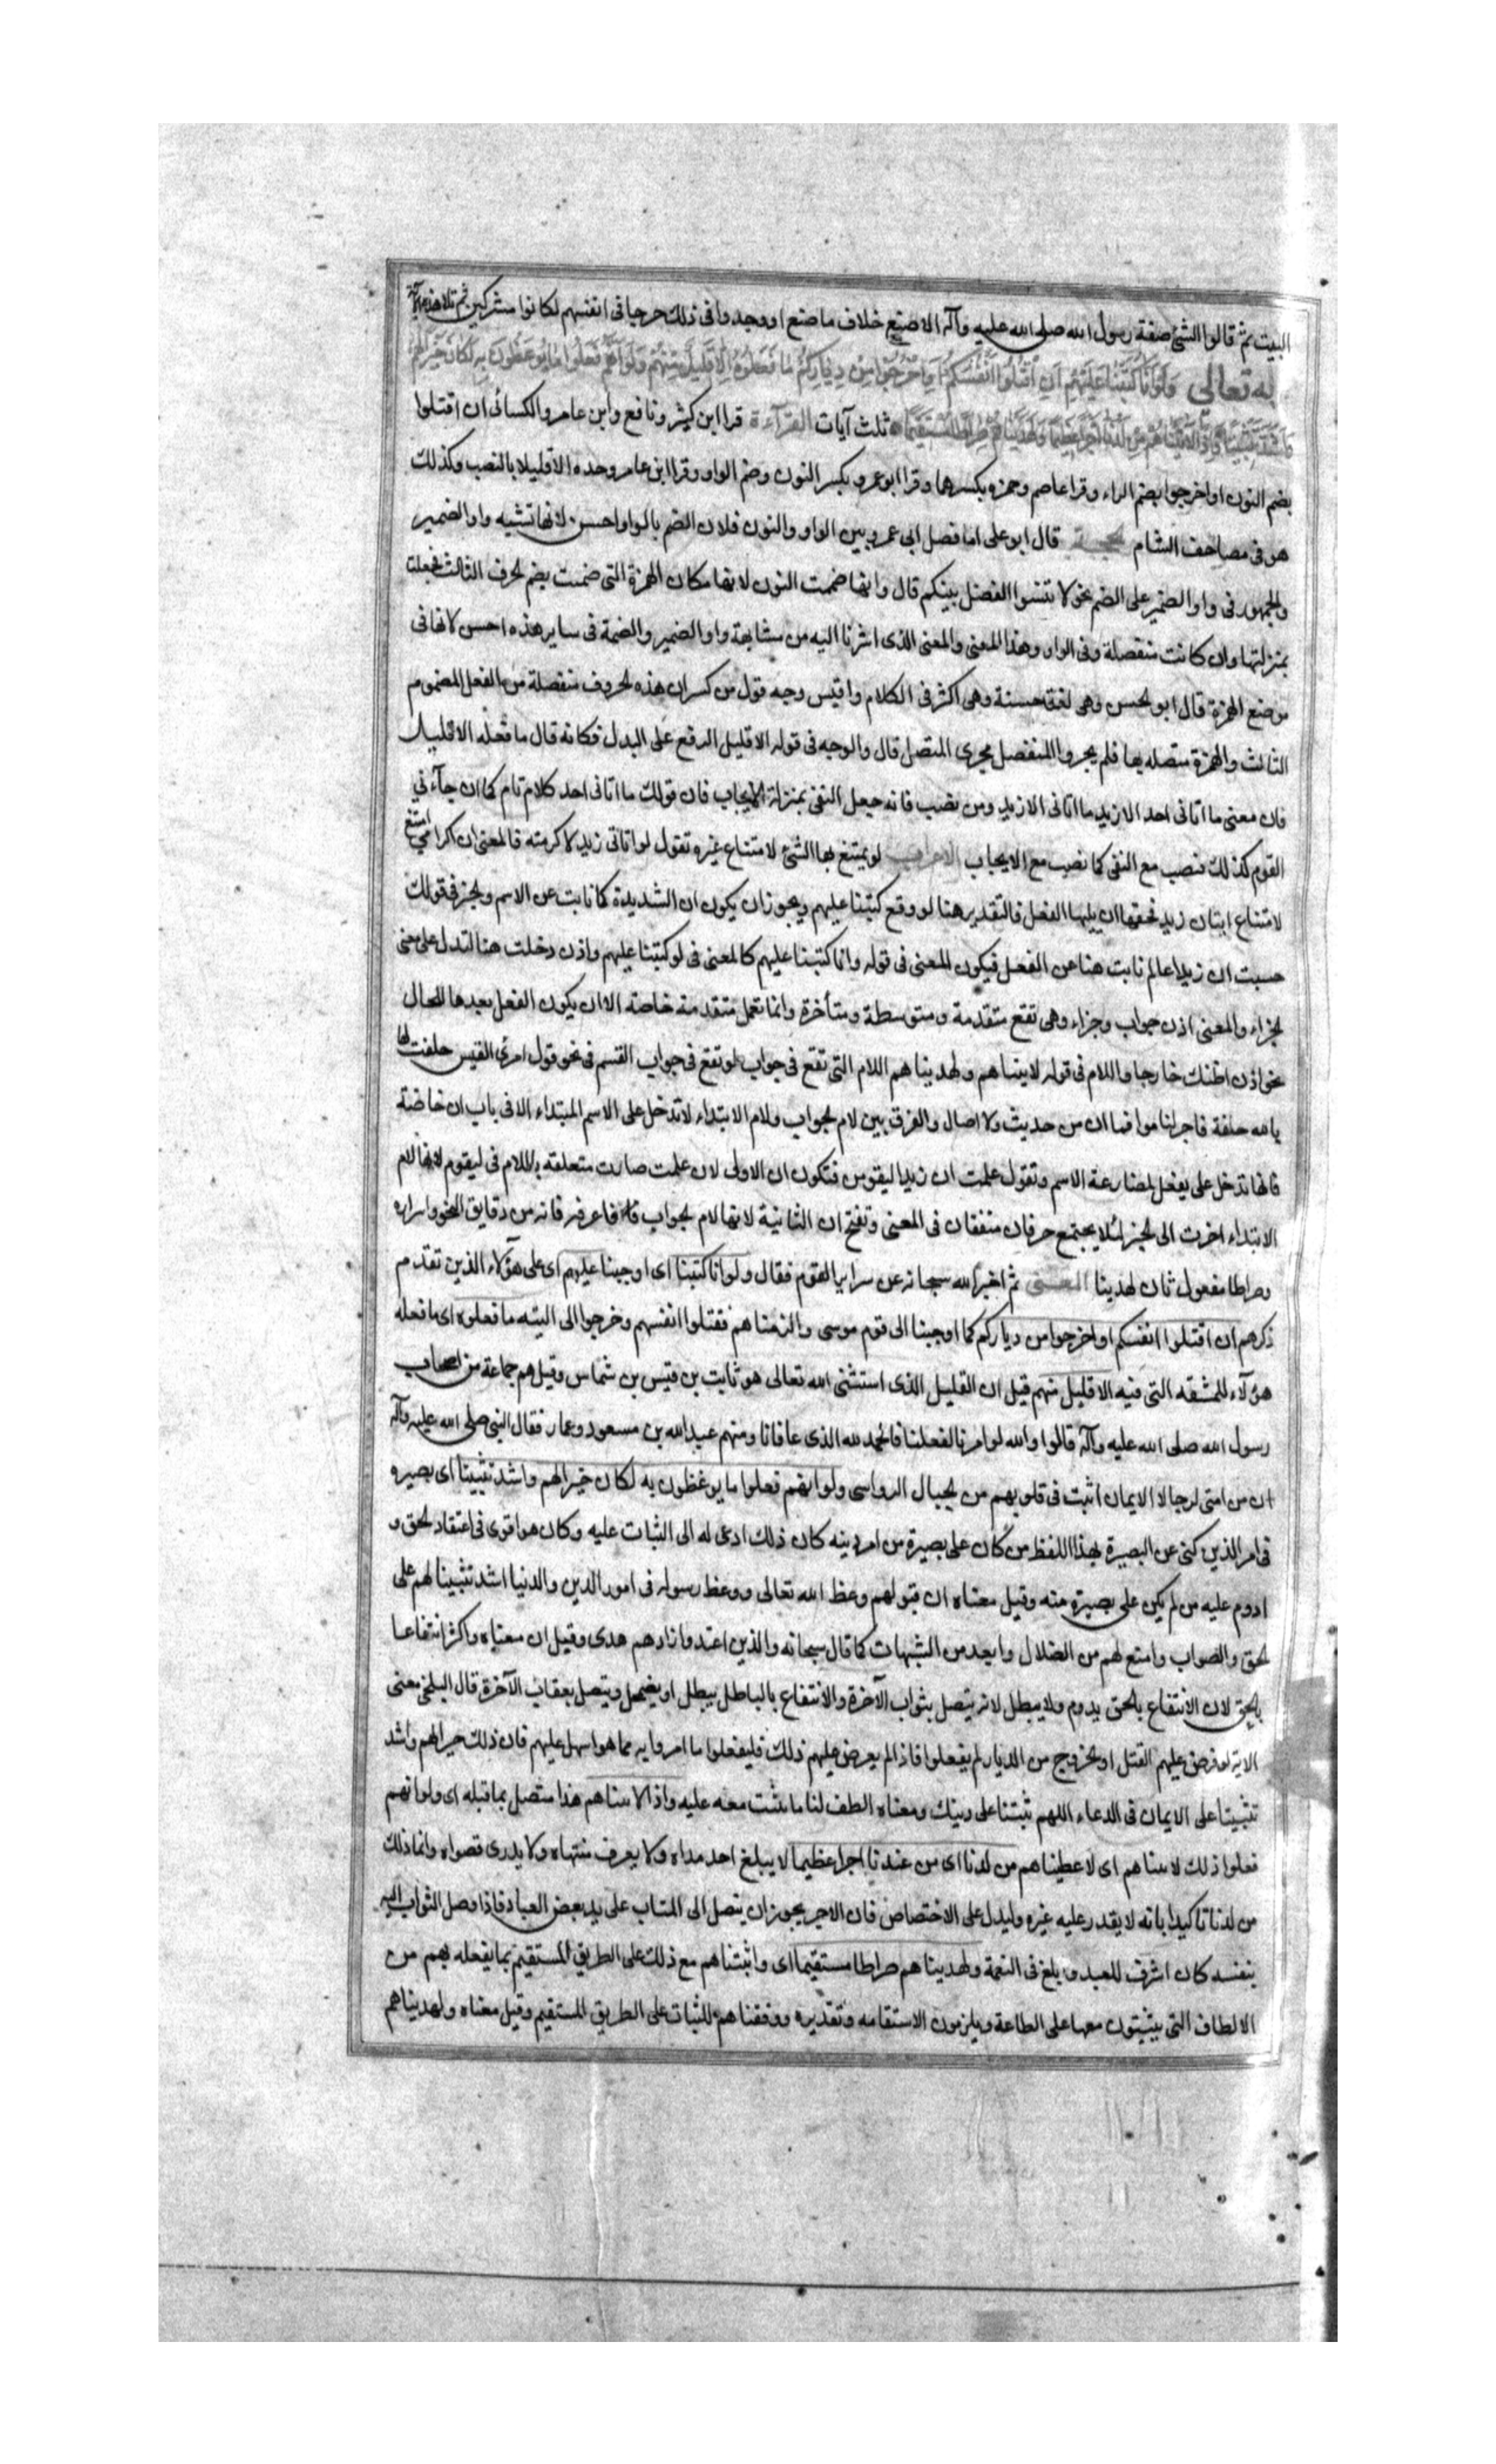 البيت ثم قالوا الشئ صنعه رسول الله صلى الله عليه وآله الا صنع خلاف ما صنع او وجدوا فى ذلك حرجا فى انفسهم لكانوا مشركين ثم تلا هذه الآية
له تعالى وَلَوْ أَنَّا كَتَبْنَا عَلَيْهِمْ أَنِ اقْتُلُوا أَنْفُسَكُمْ أَوِ اخْرُجُوا مِنْ دِيَارِكُمْ مَا فَعَلُوهُ إِلَّا قَلِيلٌ مِنْهُمْ وَلَوْ أَنَّهُمْ فَعَلُوا مَا يُوعَظُونَ بِهِ لَكَانَ خَيْرًا لَهُمْ
وَأَشَدَّ تَثْبِيتًا وَإِذًا لَآتَيْنَاهُمْ مِنْ لَدُنَّا أَجْرًا عَظِيمًا وَلَهَدَيْنَاهُمْ صِرَاطًا مُسْتَقِيمًا ثلث آيات القرآءة قرا ابن كثير ونافع وابن عامر والكسائى ان اقتلوا
بضم النون او اخرجوا بضم الراء وقرا عاصم وحمزه بكسرهما وقرا ابو عمرو بكسر النون وضم الواو وقرا ابن عامر وحده الا قليلا بالنصب وكذلك
هو فى مصاحف الشام الحجة قال ابو على اما فصل ابى عمرو بين الواو والنون فلان الضم بالواو احسن لانها تشبه واو الضمير
والجمهور فى واو الضمير على الضم نحو لا تنسوا الفضل بينكم قال وانما ضمت النون لانها مكان الهمزة التى ضمت بضم الحرف الثالث فجعلت
بمنزلتها وان كانت منفصلة وفى الواو وهذا المعنى والمعنى الذى اشرنا اليه من مشابهة واو الضمير والضمة فى ساير هذه احسن لانها فى
موضع الهمزة قال ابو الحسن وهى لغة حسنة وهى اكثر فى الكلام واقيس وجه قول من كسر ان هذه الحروف منفصلة من الفعل المضموم
الثالث والهمزة متصله بها فلم يجروا المنفصل مجرى المتصل قال والوجه فى قوله الا قليل الرفع على البدل فكانه قال ما فعله الا قليل
فان معنى ما اتانى احد الا زيد ما اتانى الا زيد ومن نصب فانه جعل النفى بمنزلة الايجاب فان قولك ما اتانى احد كلام تام كما ان جآءنى
القوم كذلك فنصب مع النفى كما نصب مع الايجاب الاعراب لو يمتنع بها الشئ لامتناع غيره تقول لو اتانى زيد لاكرمته فالمعنى ان اكرامى امتنع
لامتناع اتيان زيد فحقها ان يليها الفعل فالتقدير هنا لو وقع كتبنا عليهم ويجوز ان يكون ان الشديدة كما نابت عن الاسم والخبر فى قولك
حسبت ان زيدا عالم نابت هنا عن الفعل فيكون المعنى فى قوله وانا كتبنا عليهم كالمعنى فى لو كتبنا عليهم واذن دخلت هنا لتدل على معنى
الجزاء والمعنى اذن جواب وجزاء وهى تقع متقدمة ومتوسطة ومتأخرة وانما تعمل متقدمة خاصة الا ان يكون الفعل بعدها للحال
نحو اذن اظنك خارجا واللام فى قوله لاتيناهم ولهديناهم اللام التى تقع فى جواب لو تقع فى جواب القسم فى نحو قول امرئ القيس حلفت لها
بالله حلفة فاجر لناموا فما ان من حديث ولا صال والفرق بين لام الجواب ولام الابتداء لا تدخل على الاسم المبتداء الا فى باب ان خاصة
فانها تدخل على يفعل لمضارعة الاسم وتقول علمت ان زيدا ليقومن فتكون ان الاولى لان علمت صارت متعلقه باللام فى ليقوم لانها لام
الابتداء اخرت الى الخبر لئلا يجتمع حرفان متفقان فى المعنى وتفتح ان الثانية لانها لام الجواب فاعرفه فانه من دقايق النحو واسراره
وصراطا مفعول ثان لهدينا المعنى ثم اخبر الله سبحانه عن سراير القوم فقال ولو انا كتبنا اى اوجبنا عليهم اى على هؤلاء الذين تقدم
ذكرهم ان اقتلوا انفسكم او اخرجوا من دياركم كما اوجبنا الى قوم موسى والزمناهم فقتلوا انفسهم وخرجوا الى التيه ما فعلوه اى ما فعله
هؤلآء للمشقه التى فيه الا قليل منهم قيل ان القليل الذى استثنى الله تعالى هو ثابت بن قيس بن شماس وقيل هم جماعة من اصحاب
رسول الله صلى الله عليه وآله قالوا والله لو امرنا لفعلنا فالحمد لله الذى عافانا ومنهم عبد الله بن مسعود وعمار فقال النبى صلى الله عليه وآله
ان من امتى لرجالا الايمان اثبت فى قلوبهم من الجبال الرواسى ولو انهم فعلوا ما يوعظون به لكان خيرا لهم واشد تثبيتا اى بصيره
فى امر الدين كنى عن البصيرة بهذا اللفظ من كان على بصيرة من امر دينه كان ذلك ادعى له الى الثبات عليه وكان هو اقوى فى اعتقاد الحق و
ادوم عليه من لم يكن على بصيرة منه وقيل معناه ان قبولهم وعظ الله تعالى ووعظ رسوله فى امور الدين والدنيا اشد تثبيتا لهم على
الحق والصواب وامنع لهم من الضلال وابعد من الشبهات كما قال سبحانه والذين اهتدوا زادهم هدى وقيل ان معناه واكثر انتفاعا
بالحق لان الانتفاع بالحق يدوم ولا يبطل لانه يتصل بثواب الآخرة والانتفاع بالباطل يبطل او يضمحل ويتصل بعقاب الآخرة قال البلخى معنى
الاية لو فرض عليهم القتل او الخروج من الديار لم يفعلوا فاذا لم يعرض عليهم ذلك فليفعلوا ما امروا به مما هو اسهل عليهم فان ذلك خير لهم واشد
تثبيتا على الايمان فى الدعاء اللهم ثبتنا على دينك ومعناه الطف لنا ما نثبت معه عليه واذا لاتيناهم هذا متصل بما قبله اى ولو انهم
فعلوا ذلك لاتيناهم اى لاعطيناهم من لدنا اى من عندنا اجرا عظيما لا يبلغ احد مداه ولا يعرف منتهاه ولا يدرى قصواه وانما ذلك
من لدنا تاكيدا بانه لا يقدر عليه غيره وليدل على الاختصاص فان الاجر يجوز ان يصل الى المثاب على يد بعض العباد فاذا وصل الثواب اليه
بنفسه كان اشرف للعبد وابلغ فى النعمة ولهديناهم صراطا مستقيما اى واثبتناهم مع ذلك على الطريق المستقيم بما يفعله بهم من
الالطاف التى يثبتون معها على الطاعة ويلزمون الاستقامه وتقديره ووفقناهم للثبات على الطريق المستقيم وقيل معناه ولهديناهم